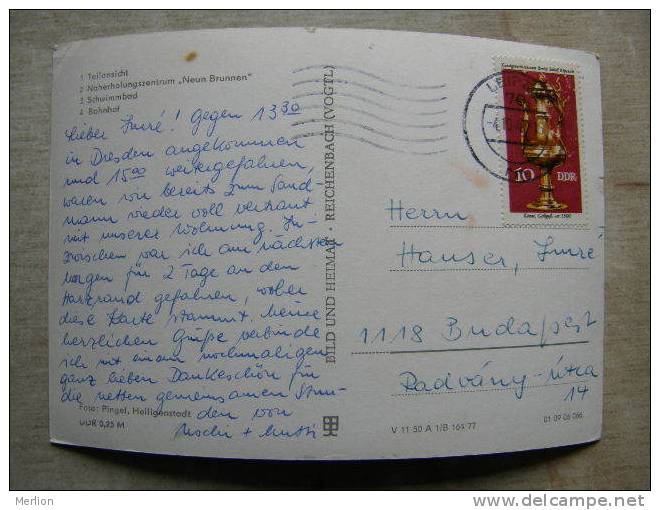 1 Teilansicht
2 Naherholungszentrum „Neun Brunnen"
3 Schwimmbad
4 Bahnhof
Lieber Imré! Gegen 13 30
in Dresden angekommen
und 15 00 weitergefahren,
waren wir bereits zum Sand-
mann wieder voll vertraut
mit unserer Wohnung. In-
zwischen war ich am nächsten
Morgen für 2 Tage an den
Harzrand gefahren, woher
diese Karte stammt. Meine
herzlichen Grüße verbinde
ich mit einem nochmaligen
ganz lieben Dankeschön für
die netten gemeinsamen Stun-
den von
+ Mutti
Foto: Pingel, Heiligenstadt
DDR 0,25 M
BILD UND HEIMAT · REICHENBACH (VOGTL)
10 DDR
Herrn
Hauser, Imré
1118 Budapest
Radvány-utca
14
V 11 50 A 1/B 164 77
01 09 06 066
Merlion
www.delcampe.net